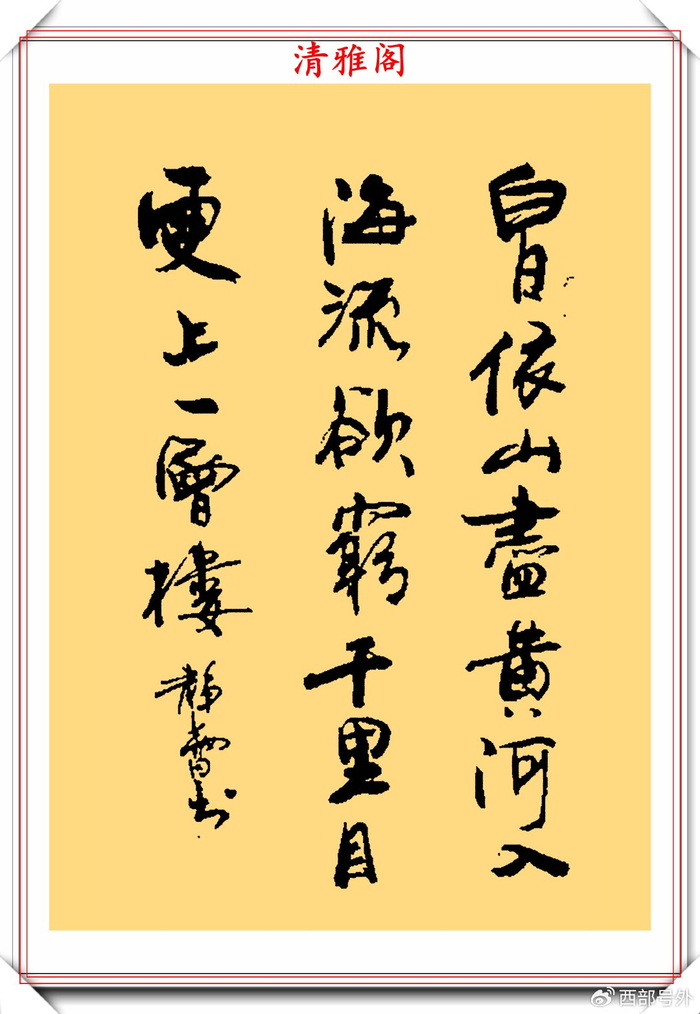 清雅阁
白日依山盡黄河入
海流欲窮千里目
更上一層樓
書
西部号外